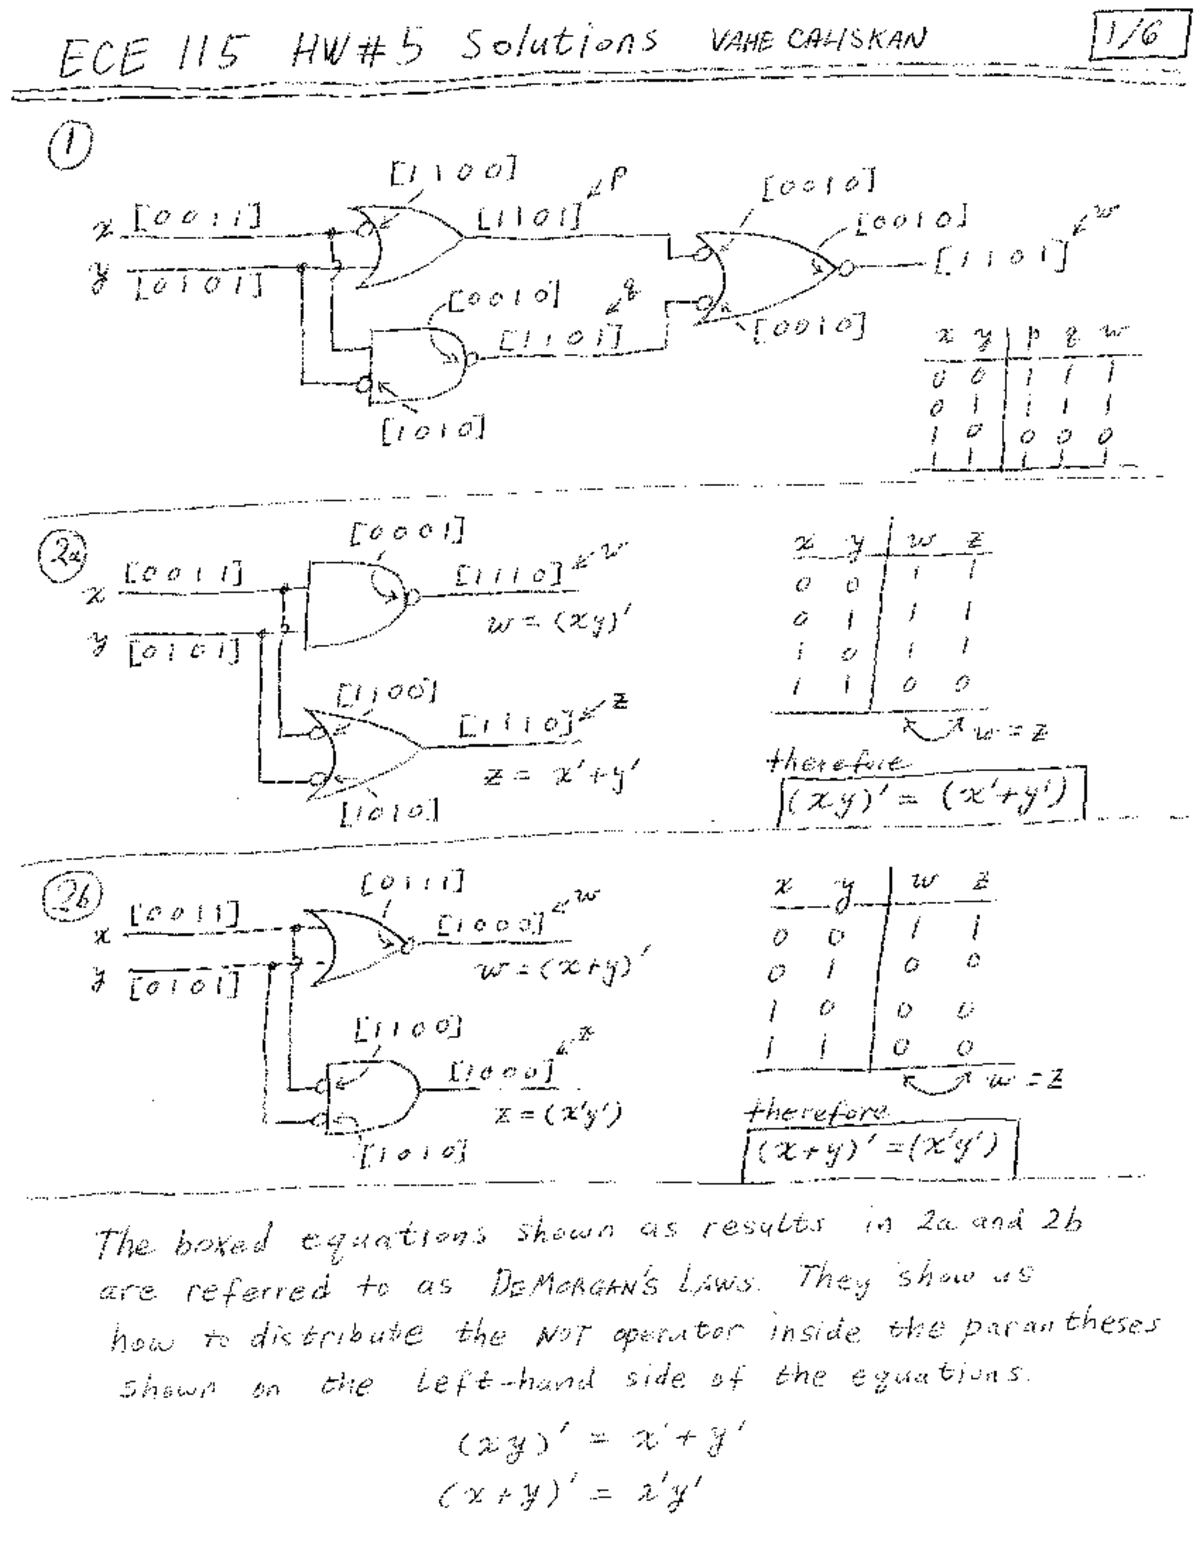 ECE 115 HW#5 Solutions VAHE CALISKAN 1/6
1
[1 1 0 0]
x [0 0 1 1]
[1 1 0 1] p
y [0 1 0 1]
[0 0 1 0]
[0 0 1 0]
[1 1 0 1] w
[0 0 1 0]
[1 1 0 1] q
[0 0 1 0]
[1 0 1 0]
x y p q w
0 0 1 1 1
0 1 1 1 1
1 0 0 0 0
1 1 1 1 1
2a
[0 0 0 1]
x [0 0 1 1]
[1 1 1 0] w
w = (xy)'
y [0 1 0 1]
[1 1 0 0]
[1 1 1 0] z
z = x'+y'
[1 0 1 0]
x y w z
0 0 1 1
0 1 1 1
1 0 1 1
1 1 0 0
w = z
therefore
(xy)' = (x'+y')
2b
[0 1 1 1]
x [0 0 1 1]
[1 0 0 0] w
w = (x+y)'
y [0 1 0 1]
[1 1 0 0]
[1 0 0 0] z
z = (x'y')
[1 0 1 0]
x y w z
0 0 1 1
0 1 0 0
1 0 0 0
1 1 0 0
w = z
therefore
(x+y)' = (x'y')
The boxed equations shown as results in 2a and 2b
are referred to as DEMORGAN'S LAWS. They show us
how to distribute the NOT operator inside the parantheses
shown on the left-hand side of the equations.
(xy)' = x'+y'
(x+y)' = x'y'